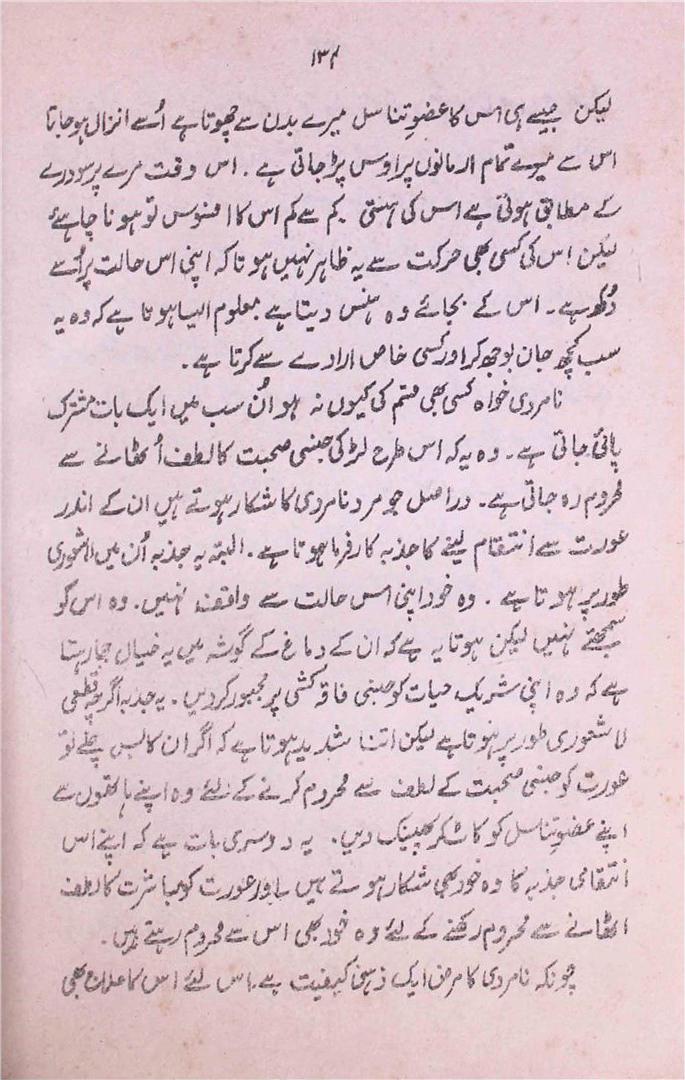 ۱۳۴
لیکن جیسے ہی اس کا عضوِ تناسل میرے بدن سے چھوتا ہے اُسے انزال ہو جاتا
اس سے میرے تمام ارمانوں پر اوس پڑ جاتی ہے۔ اس وقت مرے پر سو درے
کے مطابق ہوتی ہے اس کی ہنسی۔ کم سے کم اس کا افسوس تو ہونا چاہئے
لیکن اس کی کسی بھی حرکت سے یہ ظاہر نہیں ہوتا کہ اپنی اس حالت پر اُسے
دُکھ ہے۔ اس کے بجائے وہ ہنس دیتا ہے معلوم ایسا ہوتا ہے کہ وہ یہ
سب کچھ جان بوجھ کر اور کسی خاص ارادے سے کرتا ہے۔
نامردی خواہ کسی بھی قسم کی کیوں نہ ہو اُن سب میں ایک بات مشترک
پائی جاتی ہے۔ وہ یہ کہ اس طرح لڑکی جنسی صحبت کا لطف اُٹھانے سے
محروم رہ جاتی ہے۔ دراصل جو مرد نامردی کا شکار ہوتے ہیں ان کے اندر
عورت سے انتقام لینے کا جذبہ کارفرما ہوتا ہے۔ البتہ یہ جذبہ اُن میں لاشعوری
طور پر ہوتا ہے۔ وہ خود اپنی اس حالت سے واقف نہیں۔ وہ اس کو
سمجھتے نہیں لیکن ہوتا یہ ہے کہ ان کے دماغ کے گوشہ میں یہ خیال جما رہتا
ہے کہ وہ اپنی شریکِ حیات کو جنسی فاقہ کشی پر مجبور کر دیں۔ یہ جذبہ اگرچہ قطعی
لاشعوری طور پر ہوتا ہے لیکن اتنا شدید ہوتا ہے کہ اگر ان کا بس چلے تو
عورت کو جنسی صحبت کے لطف سے محروم کرنے کے لئے وہ اپنے ہاتھوں سے
اپنے عضوِ تناسل کو کاٹ کر پھینک دیں۔ یہ دوسری بات ہے کہ اپنے اس
انتقامی جذبہ کا وہ خود بھی شکار ہوتے ہیں اور عورت کو مباشرت کا لطف
اٹھانے سے محروم رکھنے کے لئے وہ خود بھی اس سے محروم رہتے ہیں۔
چونکہ نامردی کا مرض ایک ذہنی کیفیت ہے اس لئے اس کا علاج بھی